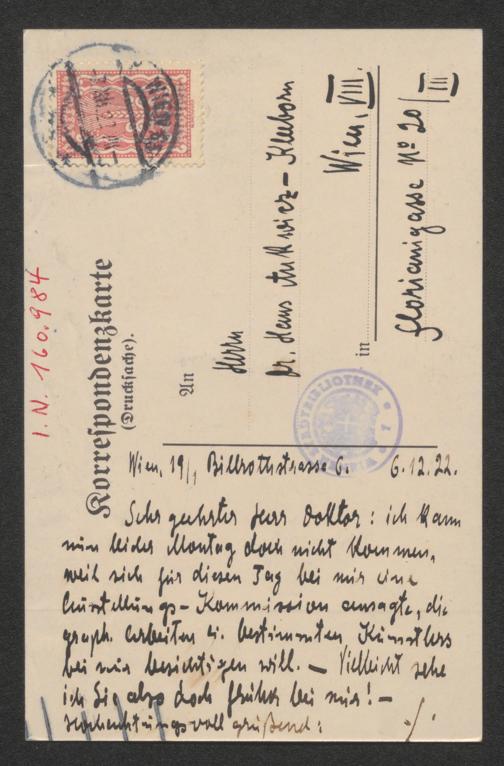 I. N. 160.984
Korrespondenzkarte
(Drucksache).
An
Herrn
Dr. Hans Ankwicz-Kleehoven
in
Wien, VIII.
Florianigasse Nº 20/III
Wien, 19/1, Billrothstrasse 6. 6.12.22.
Sehr geehrter Herr Doktor: ich kann
nun leider Montag doch nicht kommen,
weil sich für diesen Tag bei mir eine
Ausstellungs-Kommission ansagte, die
graph. Arbeiten e. bestimmten Künstlers
bei mir besichtigen will. — Vielleicht sehe
ich Sie also doch früher bei mir! —
Hochachtungsvoll grüßend:
./.